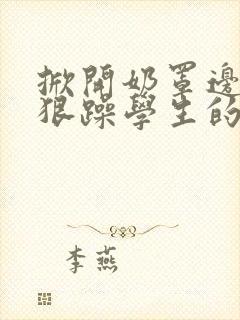 掀開奶罩邊
狠躁學生的
李燕